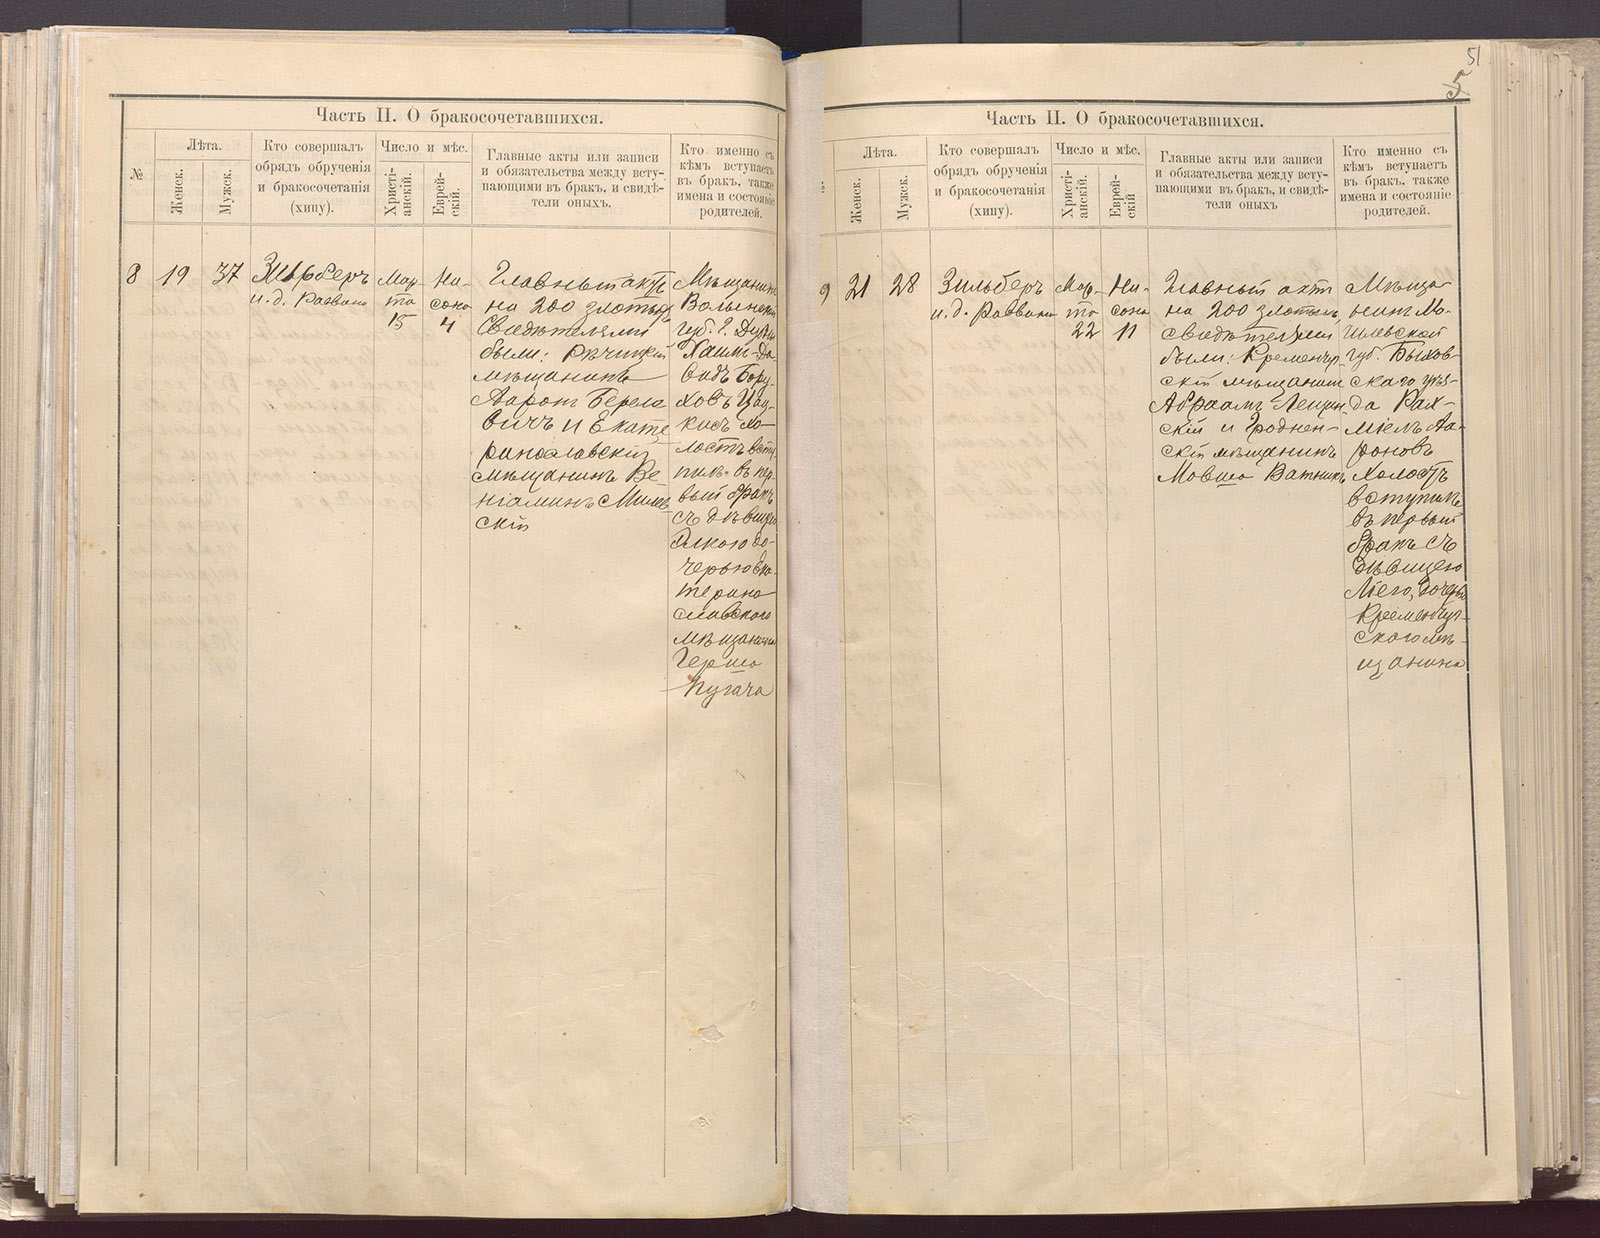 Часть II. О бракосочетавшихся.
№
Лѣта.
Женск.
Мужск.
Кто совершалъ
обрядъ обрученія
и бракосочетанія
(хипу).
Число и мѣс.
Христі-
анскій.
Еврей-
скій.
Главные акты или записи
и обязательства между всту-
пающими въ бракъ, и свидѣ-
тели оныхъ.
Кто именно съ
кѣмъ вступаетъ
въ бракъ, также
имена и состояніе
родителей.
8
19
37
Зильберъ
и. д. Раввина
Мар-
та
15
Ни-
сона
4
Главный актъ
на 200 злотыхъ
Свидѣтелями
были: Рѣчицкій
мѣщанинъ
Ааронъ Берело
вичъ и Екате
ринославскій
мѣщанинъ Ве-
ніаминъ
скій
Мѣщанинъ
Волынской
губ. г. Дубна
Хаимъ-Да-
видъ Бору-
ховъ
хо-
лостъ всту
пилъ въ пер
вый бракъ
съ дѣвицею
до-
черью Ека-
терино
славского
мѣщанина
Герша
Пугача
51
5
Часть II. О бракосочетавшихся.
Лѣта.
Женск.
Мужск.
Кто совершалъ
обрядъ обрученія
и бракосочетанія
(хипу).
Число и мѣс.
Христі-
анскій.
Еврей-
скій
Главные акты или записи
и обязательства между всту-
пающими въ бракъ, и свидѣ-
тели оныхъ
Кто именно съ
кѣмъ вступаетъ
въ бракъ, также
имена и состояніе
родителей.
9
21
28
Зильберъ
и. д. Раввина
Мар-
та
22
Ни-
сона
11
Главный актъ
на 200 злотыхъ,
свидѣтелями
были: Кременчуг-
скій мѣщанинъ
Абраамъ Лещин
скій и Гроднен-
скій мѣщанинъ
Мовша Ватникъ
Мѣща-
нинъ Мо-
гилевской
губ. Быхов-
скаго уѣз-
да Рах-
міель Аа-
роновъ
Холостъ
вступилъ
въ первый
бракъ съ
дѣвицею
Леею, дочерью
Кременчуг-
ского мѣ-
щанина